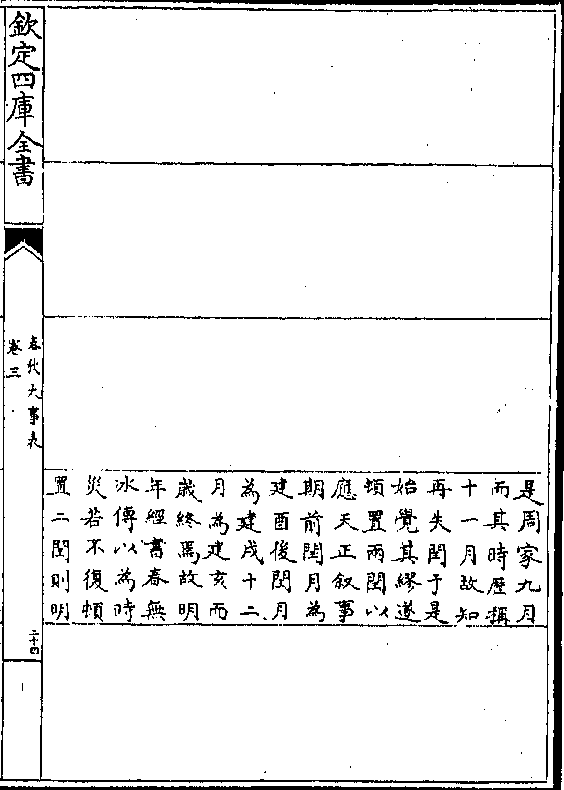 是周家九月
而其時歷稱
十一月故知
再失閏于是
始覺其繆遂
頓置兩閏以
應天正叙事
期前閏月為
建酉後閏月
為建戌十二
月為建亥而
歲終焉故明
年經書春無
冰傳以為時
災若不復頓
置二閏則明
欽定四庫全書
春秋大事表
卷三
二十四